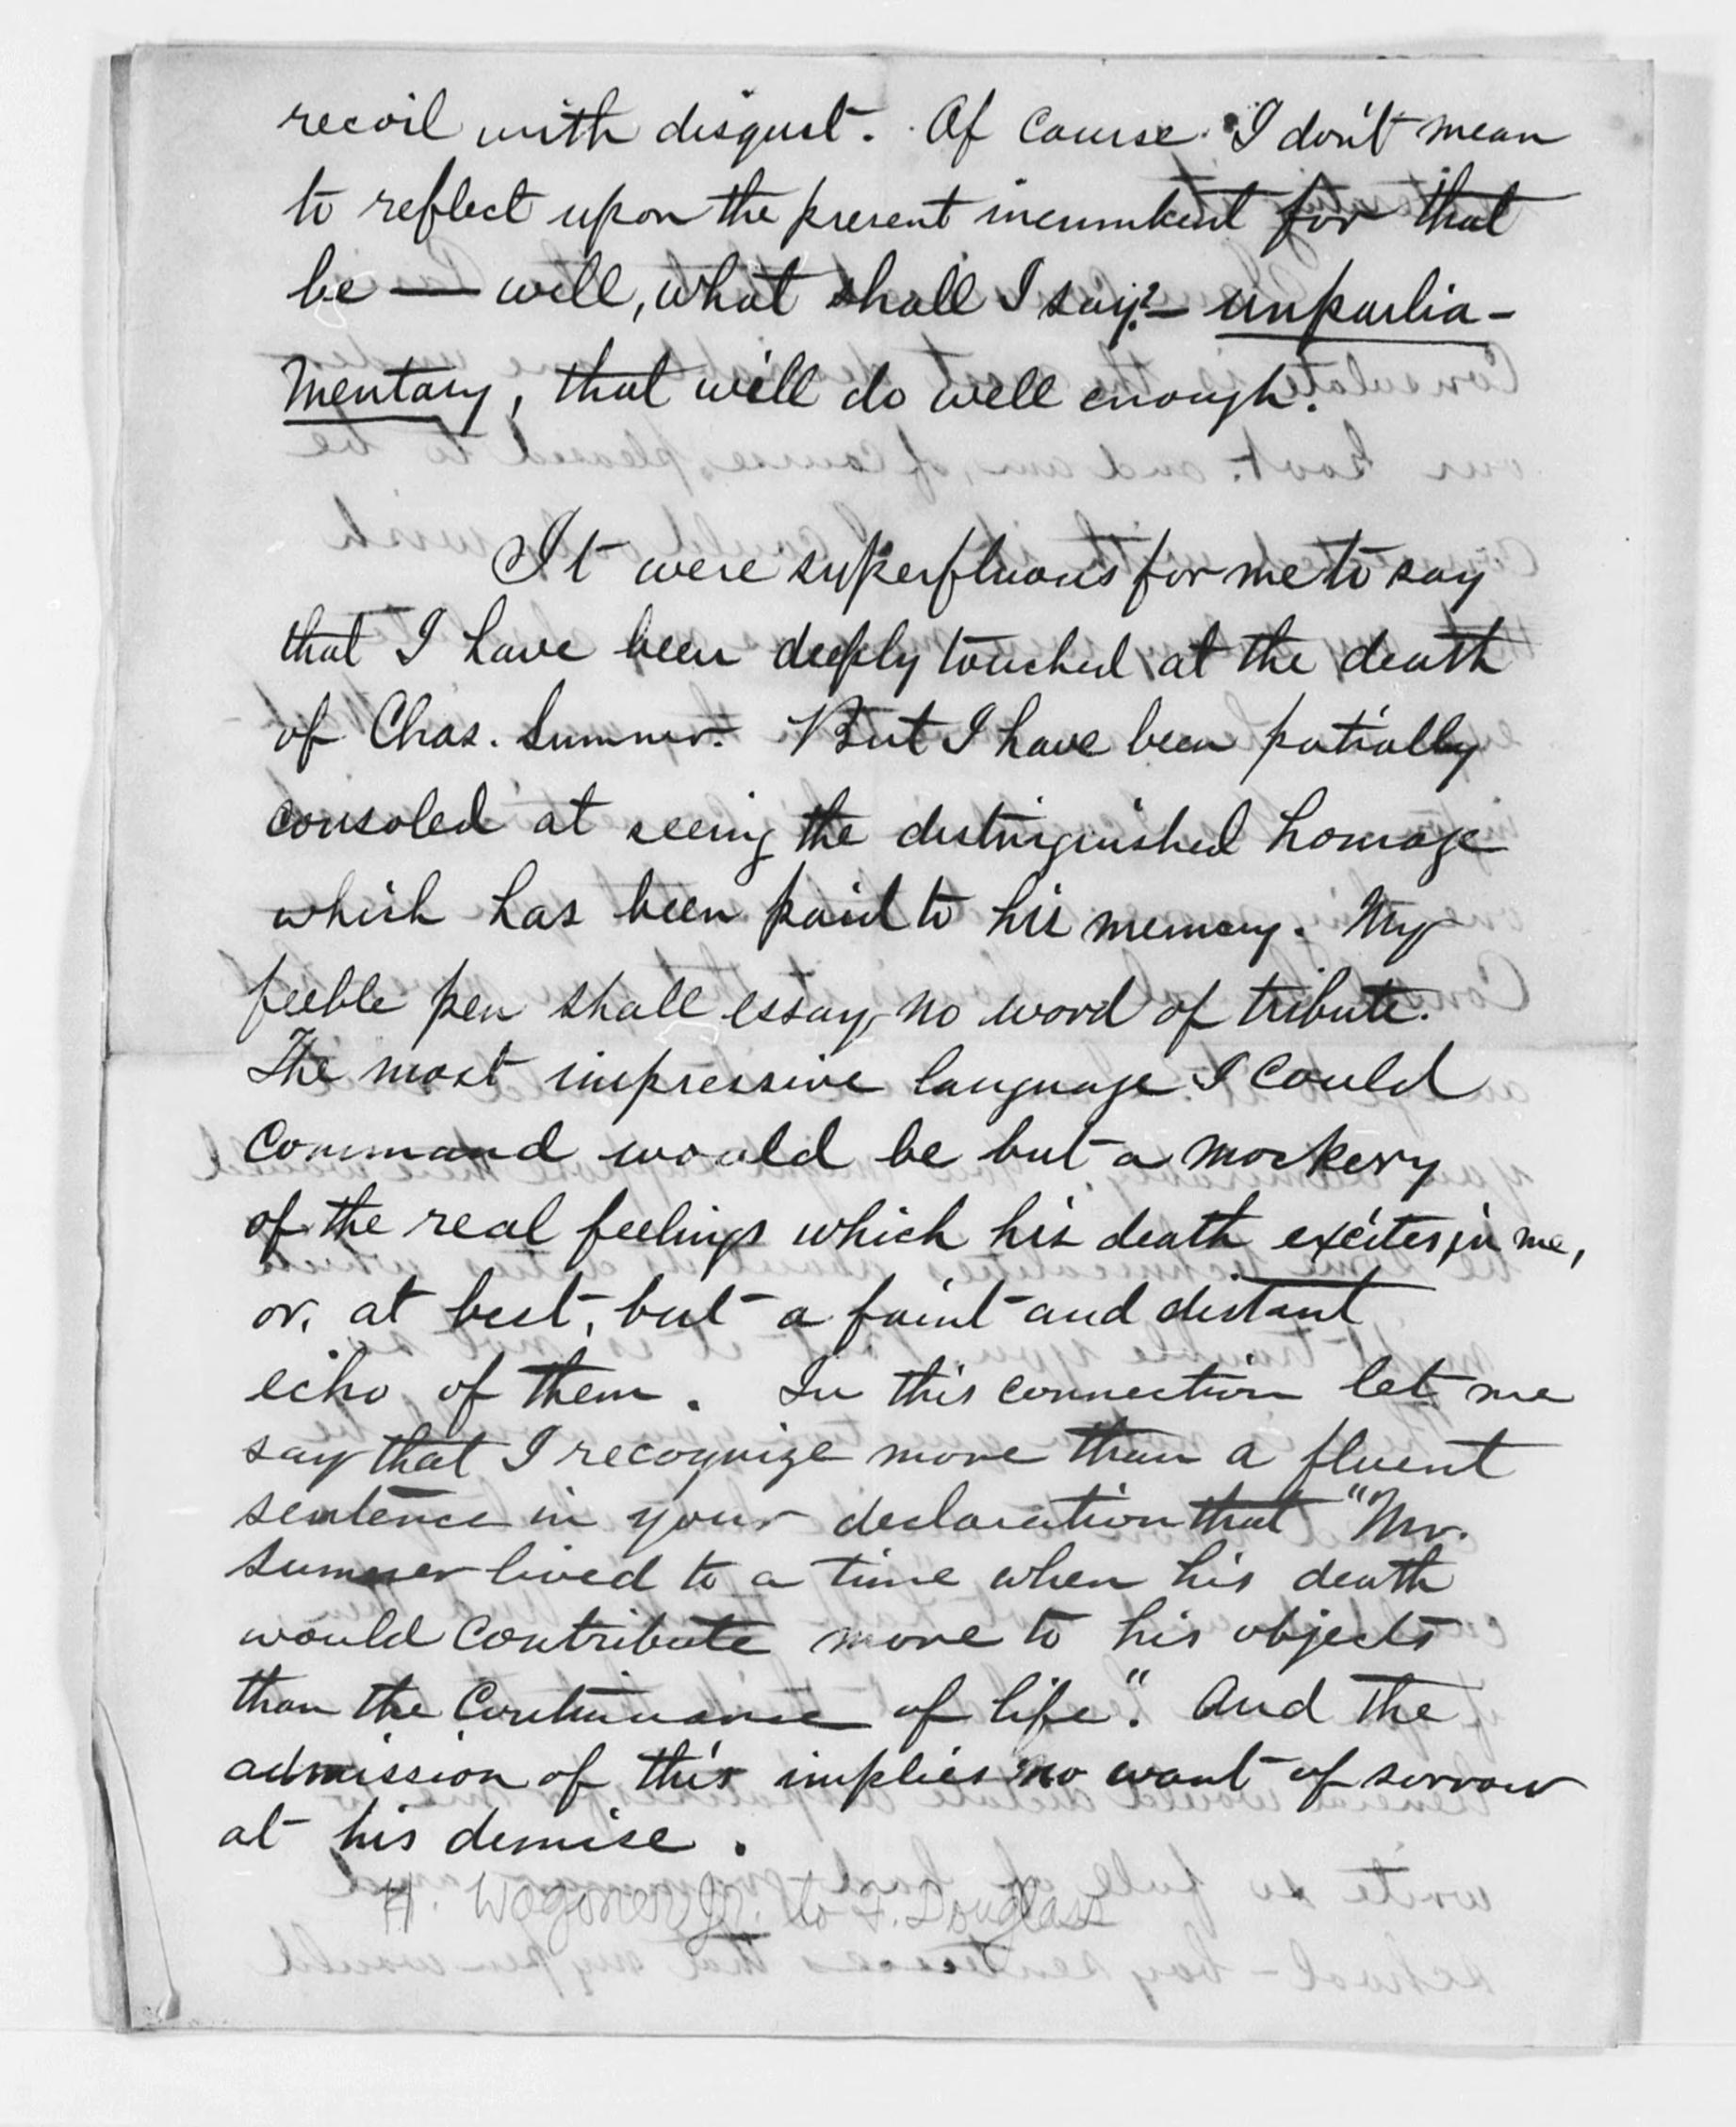 recoil with disgust. Of course I don't mean
to reflect upon the present incumbent for that
be — well, what shall I say? — unparlia-
mentary, that will do well enough.
It were superfluous for me to say
that I have been deeply touched at the death
of Chas. Sumner. But I have been patially
consoled at seeing the distinguished homage
which has been paid to his memory. My
feeble pen shall essay no word of tribute.
The most impressive language I could
command would be but a mockery
of the real feelings which his death excites in me,
or, at best, but a faint and distant
echo of them. In this connection let me
say that I recognize more than a fluent
sentence in your declaration that "Mr.
Sumner lived to a time when his death
would contribute more to his objects
than the continuance of life". And the
admission of this implies no want of sorrow
at his demise.
H. Wagoner Jr. to F. Douglass